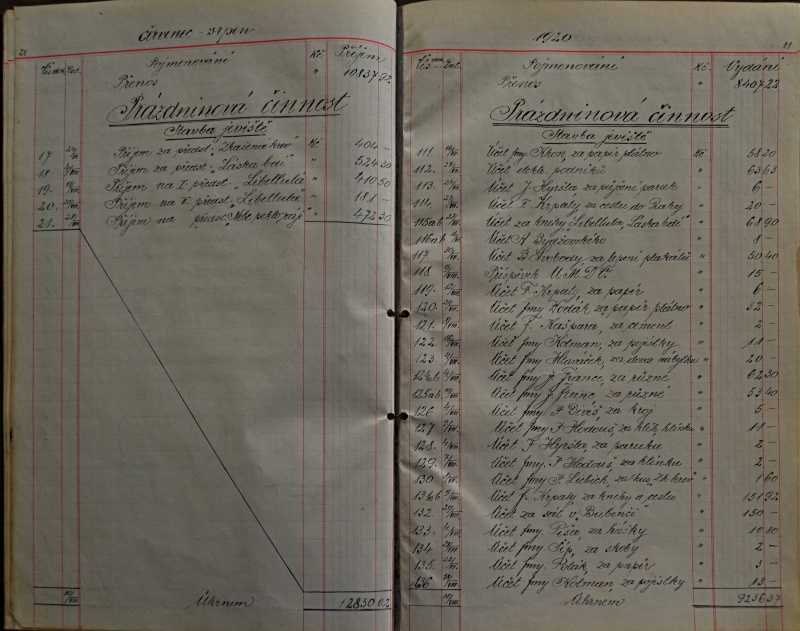 20
červenec - srpen
Čís. dokl. Dat. Pojmenování Kč Příjem
Přenos " 10837 92
Prázdninová činnost
Stavba jeviště
17. Příjem za předst. „Zkažená krev" Kč 404 —
18. Příjem za předst. „Láska bdí" " 524 20
19. Příjem na I předst. „Libellula" " 410 50
20. Příjem na II. předst. „Libellula" " 181 —
21. Příjem na předst. „Nebe peklo ráj" " 472 20
Úhrnem 12830 02
1920
21
Čís. dokl. Dat. Pojmenování Kč. Vydání
Přenos " 8407 22
Prázdninová činnost
Stavba jeviště
111. Účet fmy. Khon, za papír plátno Kč 58 20
112. Účet elektr. podniků " 63 63
113. Účet J. Hyrśla za půjčení paruk " 6 —
114. Účet F. Krpaty za cestu do Prahy " 20 —
115ab. Účet za knihy „Libellula, Láska bdí" " 68 90
116ab Účet A Bydžovského " 8 —
117 Účet B Svobody, za lepení plakátů " 50 40
118 Příspěvek U. M. D. O. " 15 —
119. Účet F. Krpaty, za papír " 6 —
120. Účet fmy Dodák, za papír, plátno " 32 —
121. Účet J. Kašpara, za cement " 2 —
122. Účet fmy Kolman, za pojistky " 11 —
123. Účet fmy Hlaváček, za dovoz nábytku " 20 —
124ab Účet fmy J. Franc, za různé " 62 30
125ab. Účet fmy J. Franc, za různé " 53 40
126 Účet fmy. F Diviš, za kroj " 5 —
127 Účet fmy F Hodouš, za klih, klinku " 11 —
128. Účet F. Hyrśla, za paruku " 2 —
129. Účet fmy. F Hodouš, za klinku " 2 —
130 Účet fmy F. Liebich, za kus. Zk. krev " 1 60
131ab Účet F. Krpaty za knihy a cestu " 151 92
132. Účet za sál v „Bubenči" " 150 —
133. Účet fmy. Píša, za háčky " 10 80
134. Účet fmy Šíp, za skoby " 2 —
135. Účet fmy. Polák, za papír " 3 —
136 Účet fmy Kolman, za pojistky " 13 —
Úhrnem 9236 37